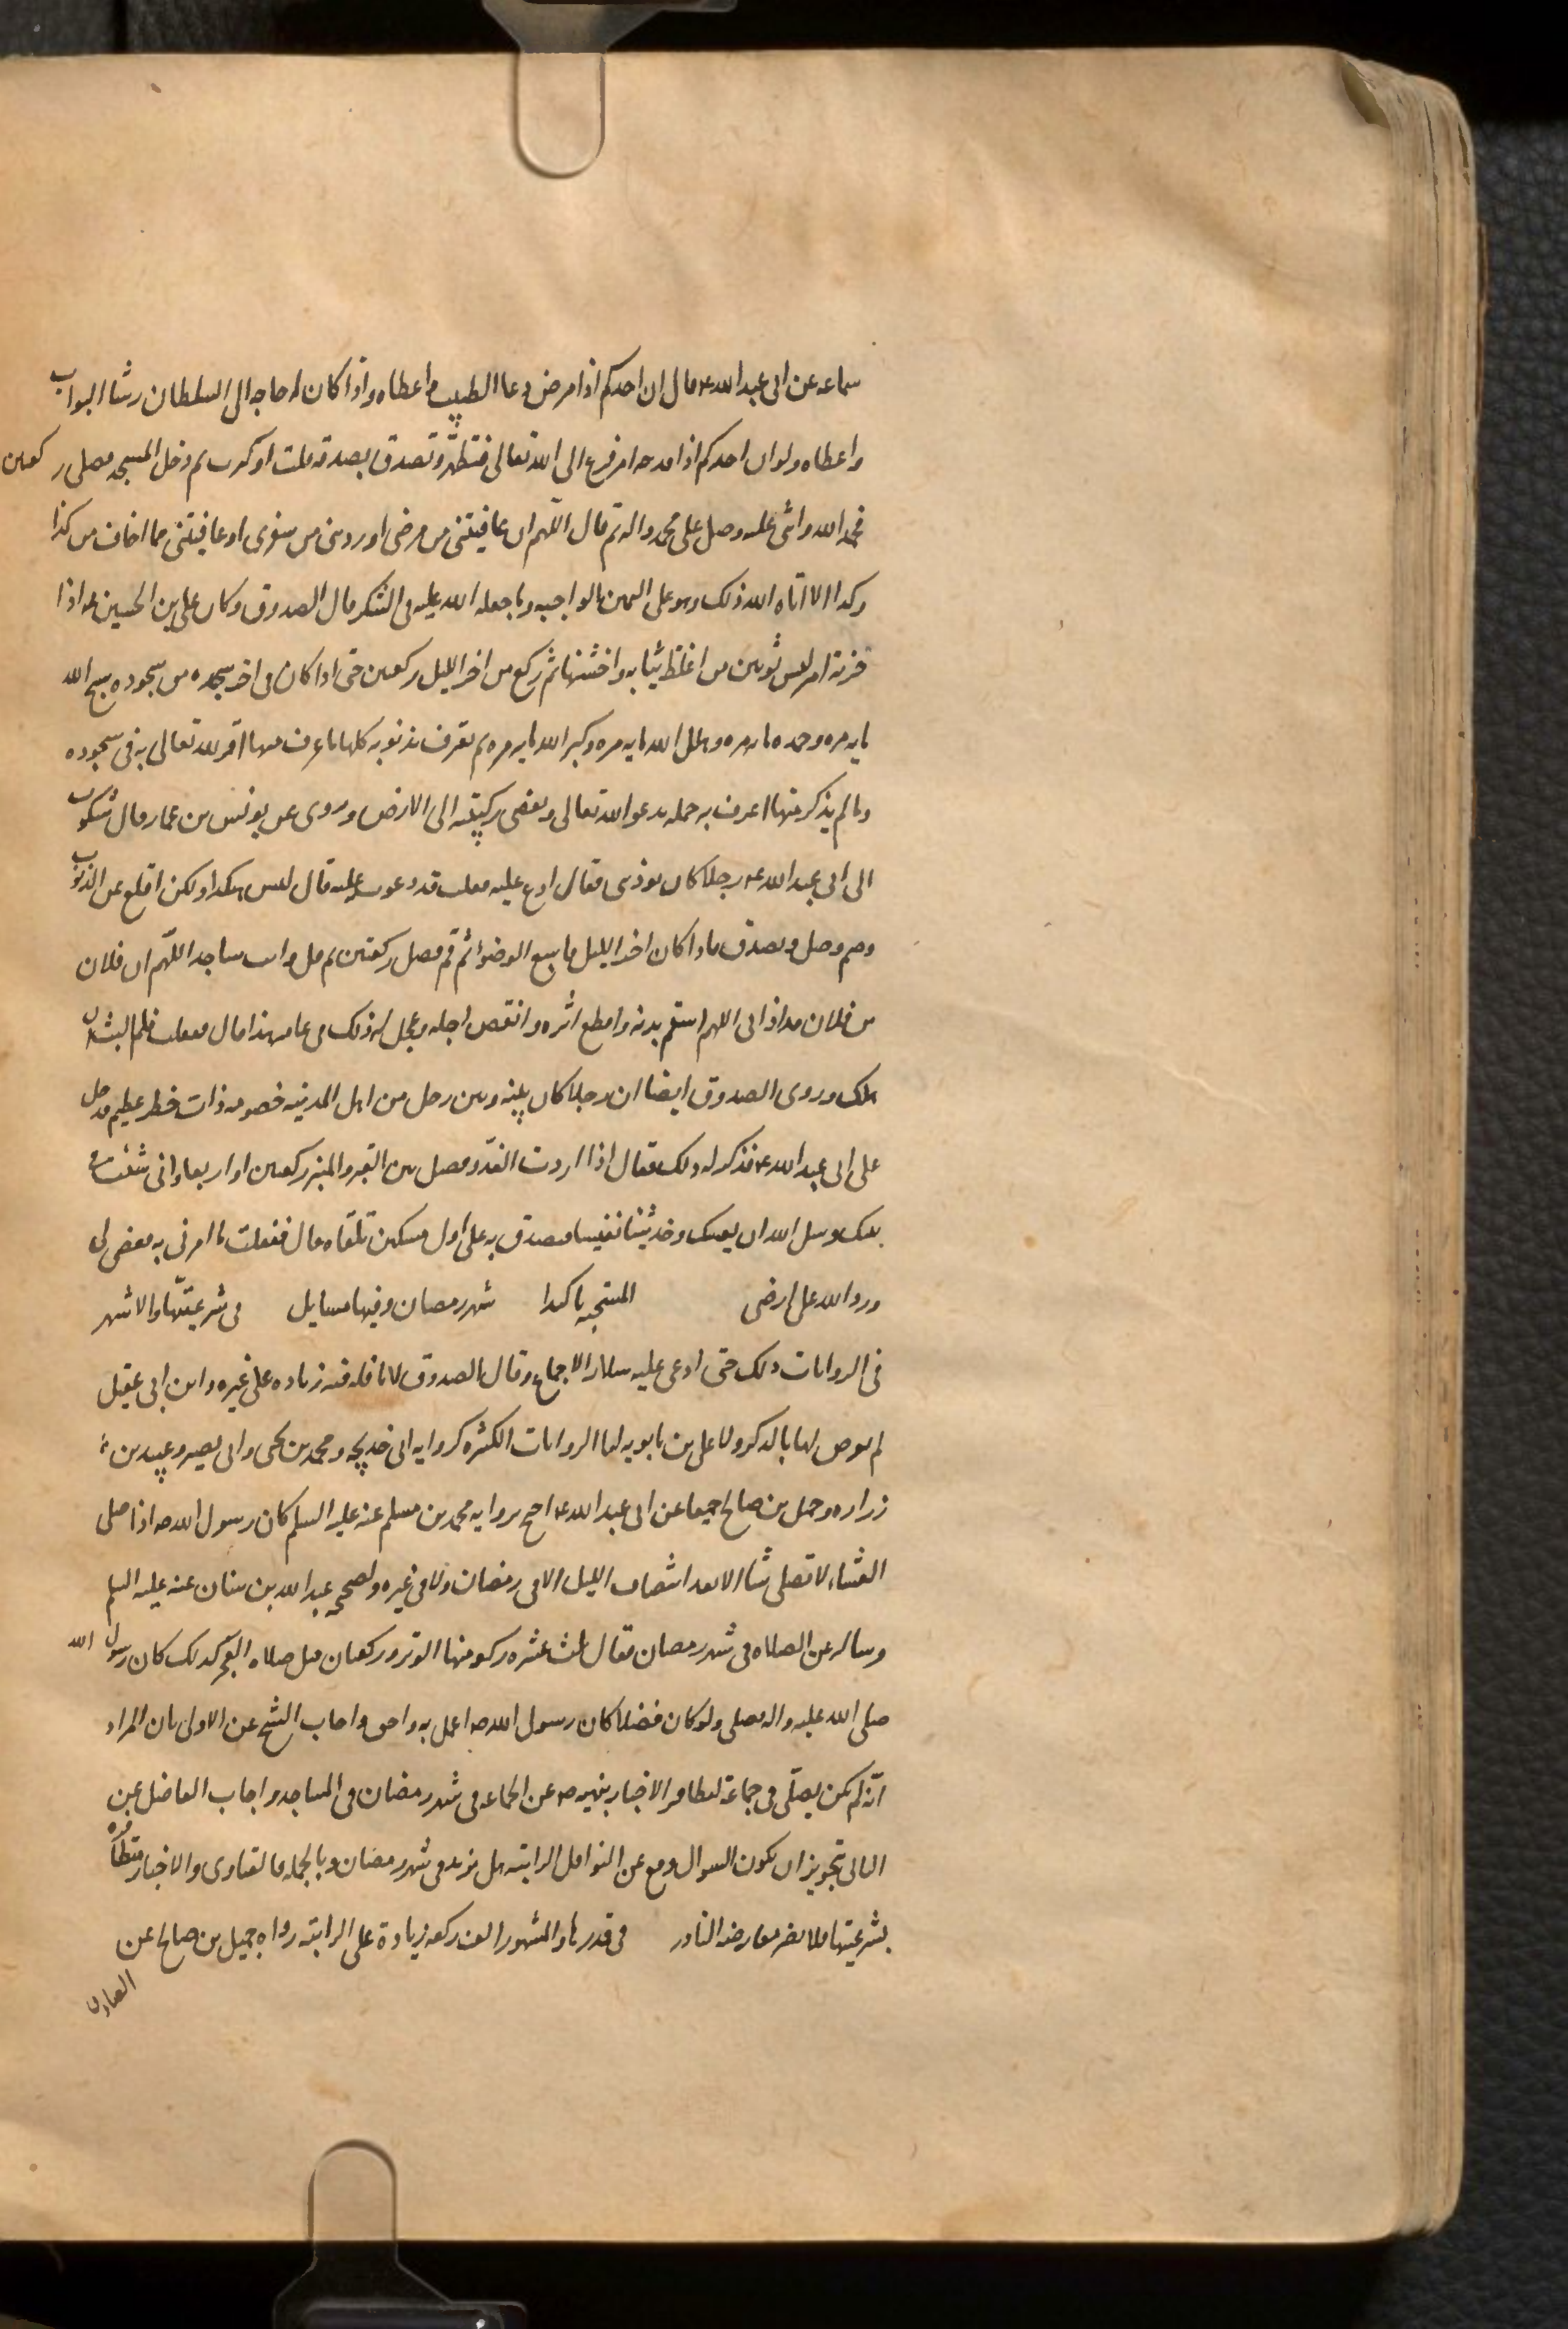 سماعه عن ابى عبد الله ع قال ان احدكم اذا مرض دعا الطبيب واعطاه واذا كان له حاجه الى السلطان رشا البواب
واعطاه ولو ان احدكم اذا فدحه امر فزع الى الله تعالى فتطهر وتصدق بصدقه قلت او كثرت ثم دخل المسجد فصلى ركعتين
فحمد الله واثنى عليه وصلى على محمد واله ثم قال اللهم ان عافيتنى من مرضى او رددتنى من سفرى او عافيتنى مما اخاف من كذا
وكذا الا اتاه الله ذلك وهى اليمين الواجبه وما جعله الله عليه فى الشكر قال الصدوق وكان على بن الحسين ع اذا
حزنه امر لبس ثوبين من اغلظ ثيابه واخشنها ثم ركع من اخر الليل ركعتين حتى اذا كان فى اخر سجده من سجوده سبح الله
مايه مره وحمده مايه مره وهلل الله مايه مره وكبر الله مايه مره ثم يعترف بذنوبه كلها ما عرف منها اقر لله تعالى به فى سجوده
وما لم يذكر منها اعترف به جمله ثم يدعو الله تعالى ويفضى بركبتيه الى الارض وروى عن يونس بن عمار قال شكوت
الى ابى عبد الله ع رجلا كان يوذينى فقال ادع عليه فقلت قد دعوت عليه قال ليس هكذا ولكن اقلع عن الذنوب
وصم وصل وتصدق فاذا كان اخر الليل فاسبغ الوضوء ثم قم فصل ركعتين ثم قل وانت ساجد اللهم ان فلان
بن فلان قد اذانى اللهم اسقم بدنه واقطع اثره وانقص اجله وعجل له ذلك فى عامه هذا قال ففعلت فلم البث ان
هلك وروى الصدوق ايضا ان رجلا كان بينه وبين رجل من اهل المدينه خصومه ذات خطر عظيم فدخل
على ابى عبد الله ع فذكر له ذلك فقال اذا اردت الغدو فصل بين القبر والمنبر ركعتين او اربعا وان شئت فى
بيتك وسل الله ان يعينك وخذ شيئا نفيسا فتصدق به على اول مسكين تلقاه قال ففعلت ما امرنى به فقضى لى
ورد الله على ارضى المستحبه كذا شهر رمضان وفيها مسايل فى شرعيتها والاشهر
فى الروايات ذلك حتى ادعى عليه سلار الاجماع وقال الصدوق لا نافله فيه زياده على غيره وابن ابى عقيل
لم يعرض لها بالذكر ولا على بن بابويه لنا الروايات الكثيره كروايه ابى خديجه ومحمد بن يحيى وابى بصير وعبيد بن
زراره وجميل بن صالح جميعا عن ابى عبد الله ع احتج بروايه محمد بن مسلم عنه عليه السلم كان رسول الله ص اذا صلى
العشاء لا تصلى شيا الا بعد انتصاف الليل لا فى رمضان ولا فى غيره ولصحيحه عبد الله بن سنان عنه عليه السلم
وساله عن الصلاه فى شهر رمضان فقال ثلث عشره ركعه منها الوتر وركعتان قبل صلاه الفجر كذلك كان رسول الله
صلى الله عليه واله يصلى ولو كان فضلا كان رسول الله ص اعمل به واحق واجاب الشيخ عن الاولى بان المراد
انه لم يكن يصلى فى جماعة لتظافر الاخبار بنهيه ص عن الجماعه فى شهر رمضان فى المساجد واجاب الفاضل عن
الثانى بتجويز ان يكون السوال وقع عن النوافل الراتبه هل تزيد فى شهر رمضان وبالجمله فالفتاوى والاخبار متظافره
بشرعيتها فلا يضر معارضه النادر فى قدرها والمشهور الف ركعه زيادة على الراتبه رواه جميل بن صالح عن
الصادق